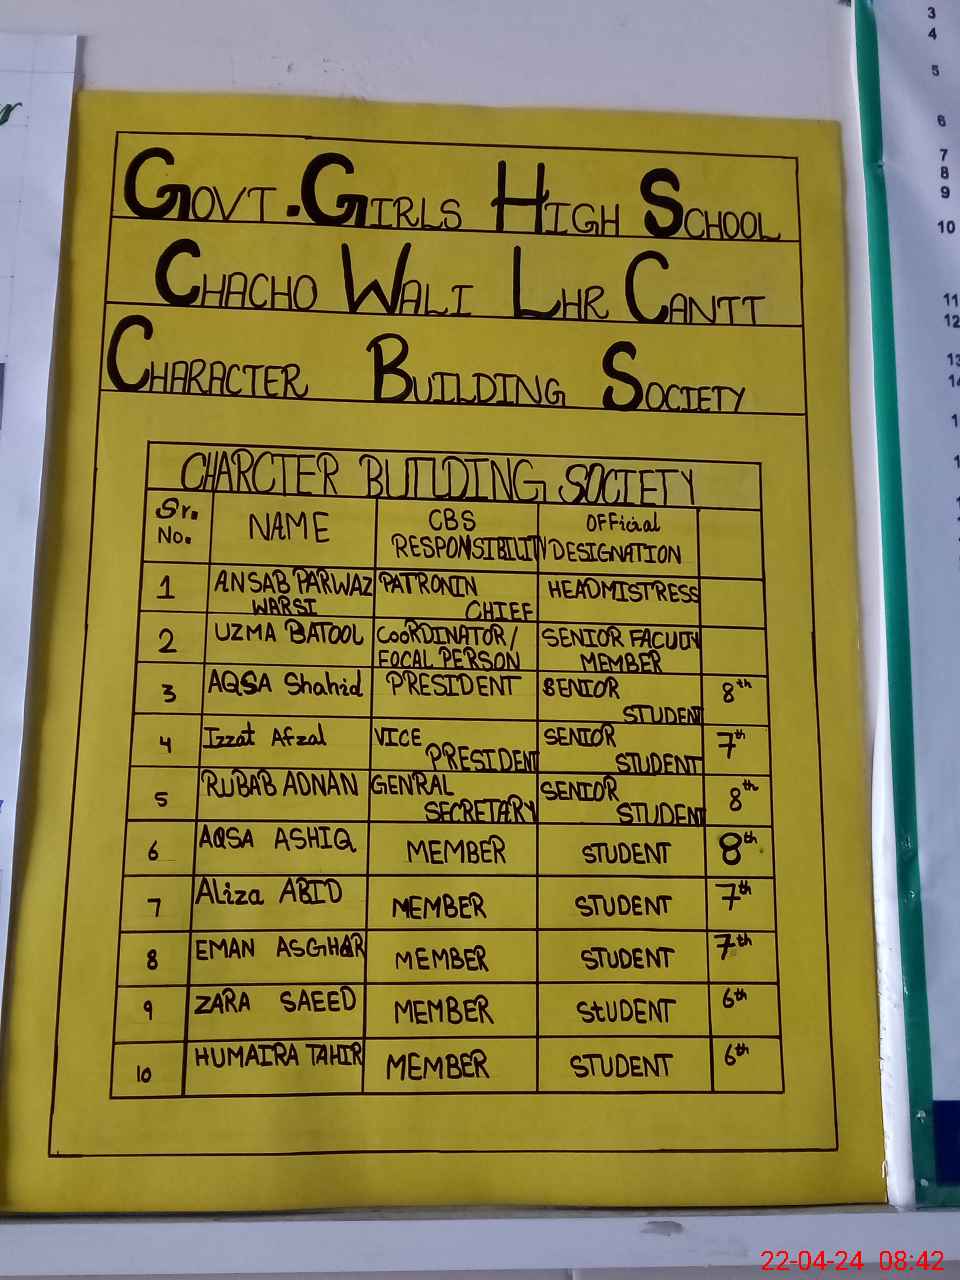 GOVT. GIRLS HIGH SCHOOL
CHACHO WALI LHR CANTT
CHARACTER BUILDING SOCIETY
CHARCTER BUILDING SOCIETY
Sr. No. NAME CBS RESPONSIBILITY OFFicial DESIGNATION
1 ANSAB PARWAZ WARSI PATRONIN CHIEF HEADMISTRESS
2 UZMA BATOOL CooRDINATOR/ FOCAL PERSON SENIOR FACULTY MEMBER
3 AQSA Shahid PRESIDENT SENIOR STUDENT 8th
4 Izzat Afzal VICE PRESIDENT SENIOR STUDENT 7th
5 RUBAB ADNAN GENRAL SECRETARY SENIOR STUDENT 8th
6 AQSA ASHIQ MEMBER STUDENT 8th
7 ALiza ABID MEMBER STUDENT 7th
8 EMAN ASGHAR MEMBER STUDENT 7th
9 ZARA SAEED MEMBER StUDENT 6th
10 HUMAIRA TAHIR MEMBER STUDENT 6th
3
4
5
6
7
8
9
10
11
12
13
22-04-24 08:42